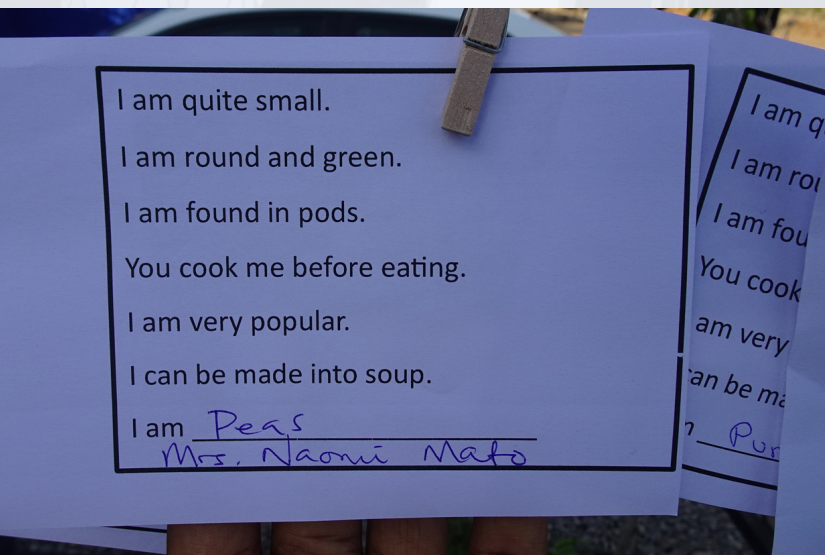 I am quite small.
I am round and green.
I am found in pods.
You cook me before eating.
I am very popular.
I can be made into soup.
I am Peas
Mrs. Naomi Mato
I am q
I am rou
I am fou
You cook
am very
can be ma
Pur